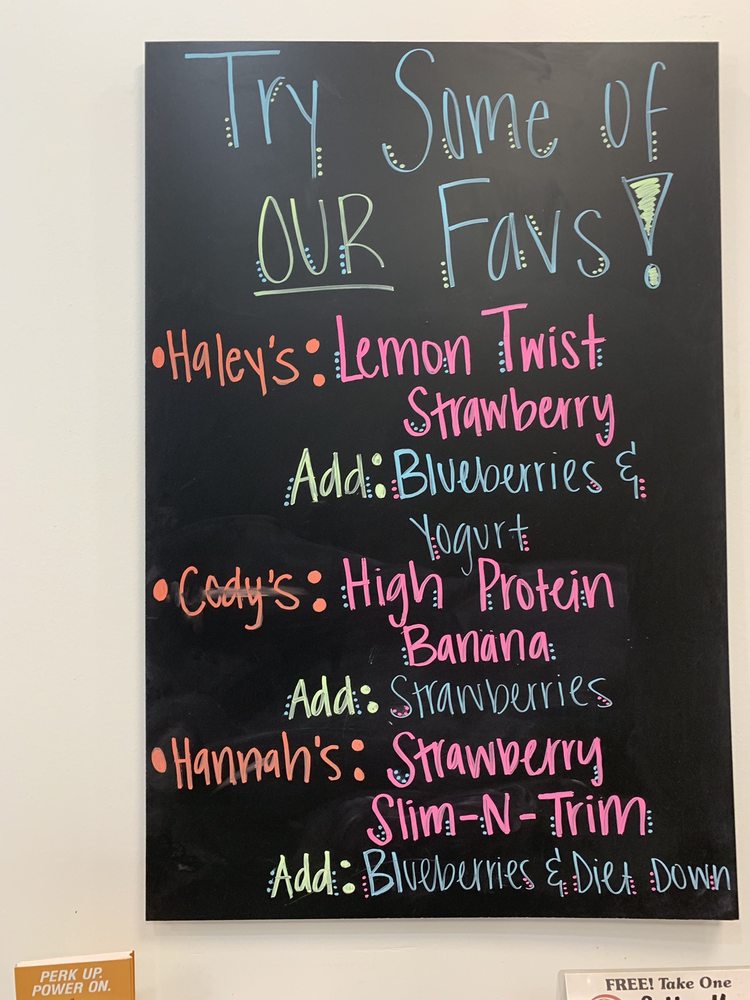 Try Some of
OUR Favs!
•Haley's: Lemon Twist
Strawberry
Add: Blueberries &
Yogurt
•Cody's: High Protein
Banana
Add: Strawberries
•Hannah's: Strawberry
Slim-N-Trim
Add: Blueberries & Diet Down
PERK UP.
POWER ON.
FREE! Take One